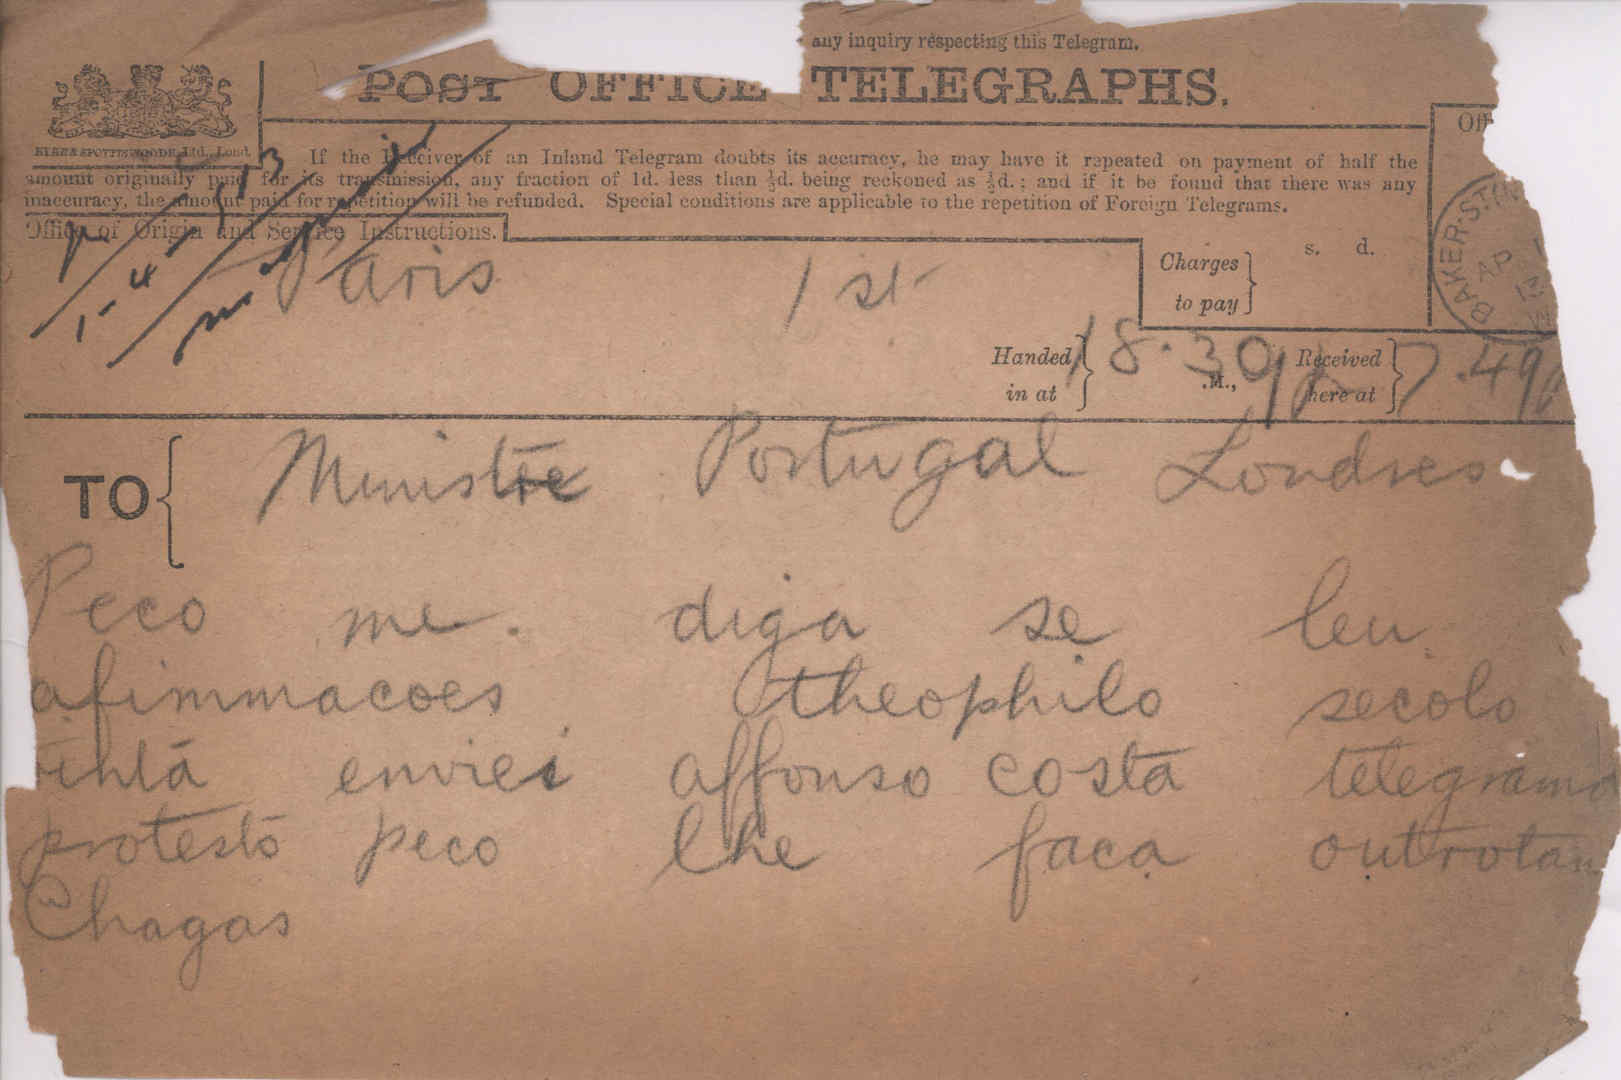 any inquiry respecting this Telegram.
POST OFFICE TELEGRAPHS.
EYRE & SPOTTISWOODE, Ltd., Lond.
If the Receiver of an Inland Telegram doubts its accuracy, he may have it repeated on payment of half the
amount originally paid for its transmission, any fraction of 1d. less than ½d. being reckoned as ½d.; and if it be found that there was any
inaccuracy, the amount paid for repetition will be refunded. Special conditions are applicable to the repetition of Foreign Telegrams.
Office of Origin and Service Instructions.
1-4-913
Paris 1st
Charges to pay
s. d.
BAKER.ST.
AP 1
13
W
Handed in at 18.30 .M.,
Received here at 7.49
TO Ministre Portugal Londres
Peco me diga se leu
afimmacoes theophilo secolo
enviei affonso costa telegrama
protesto peco lhe faca outrotan
Chagas